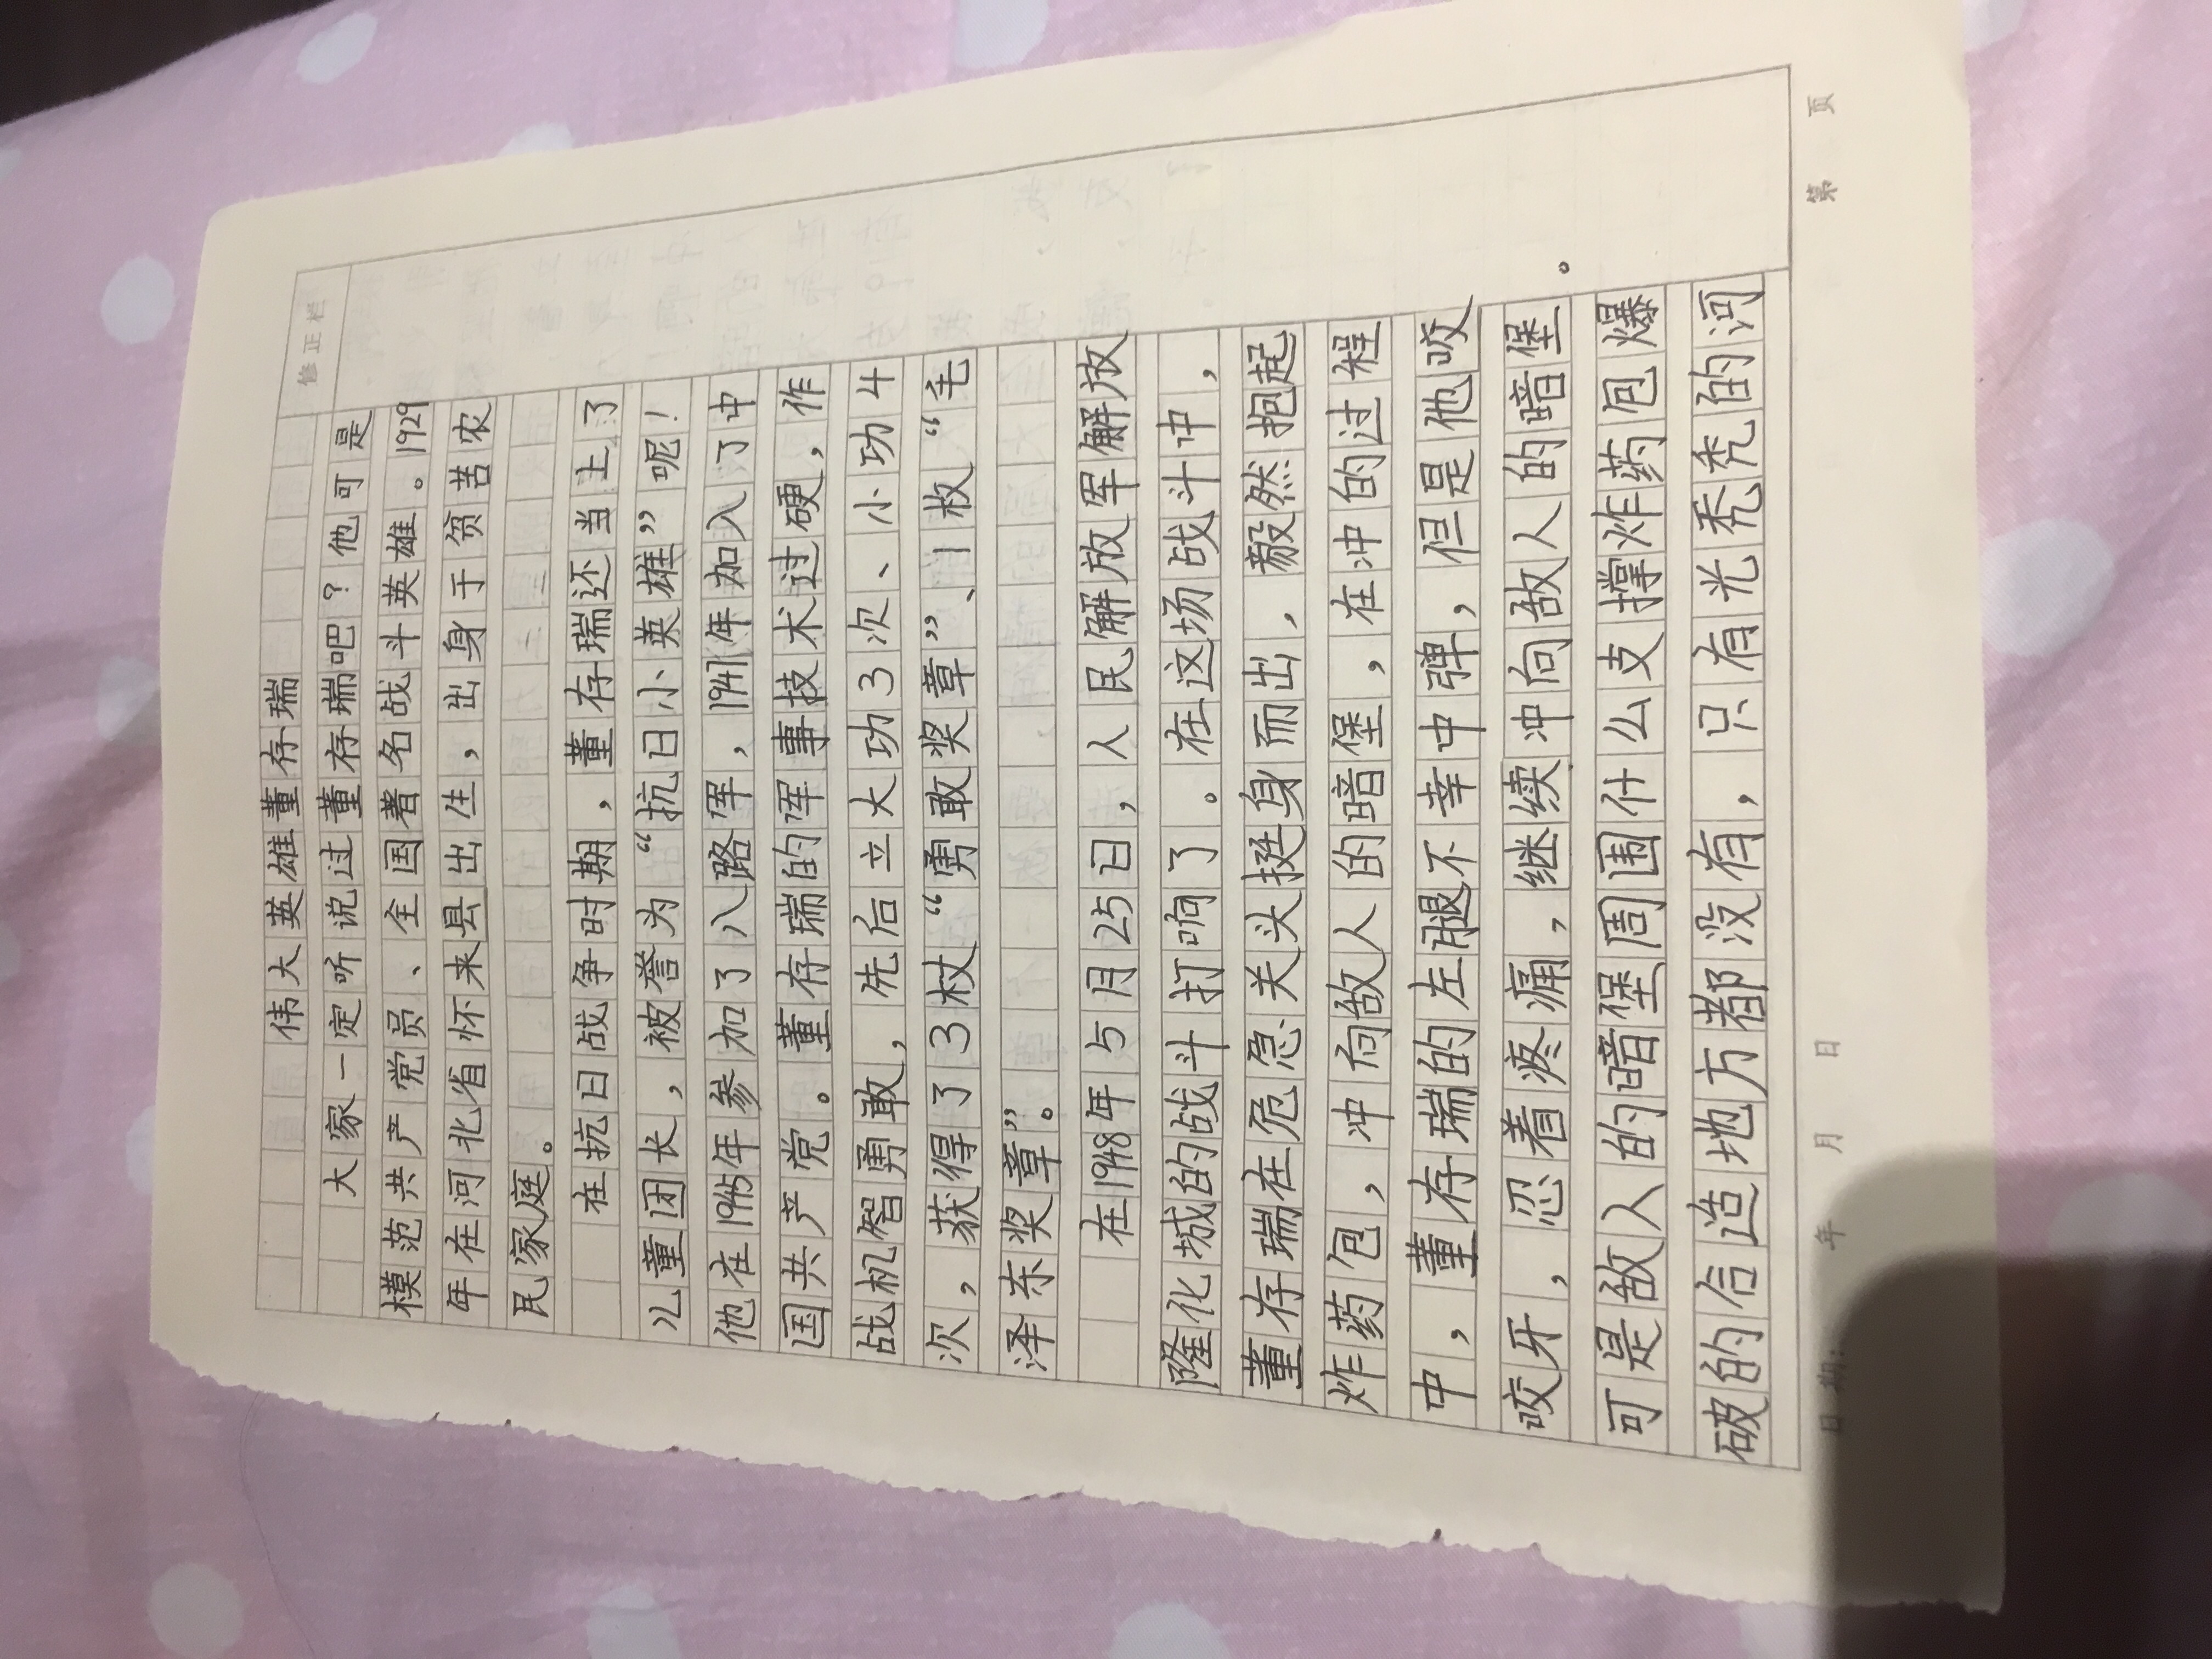 修正栏
伟大英雄董存瑞
大家一定听说过董存瑞吧？他可是
模范共产党员、全国著名战斗英雄。1929
年在河北省怀来县出生，出身于贫苦农
民家庭。
在抗日战争时期，董存瑞还当上了
儿童团长，被誉为“抗日小英雄”呢！
他在1945年参加了八路军，1947年加入了中
国共产党。董存瑞的军事技术过硬，作
战机智勇敢，先后立大功3次、小功4
次，获得了3枚“勇敢奖章”、1枚“毛
泽东奖章”。
在1948年5月25日，人民解放军解放
隆化城的战斗打响了。在这场战斗中，
董存瑞在危急关头挺身而出，毅然抱起
炸药包，冲向敌人的暗堡，在冲的过程
中，董存瑞的左腿不幸中弹，但是他咬
咬牙，忍着疼痛，继续冲向敌人的暗堡。
可是敌人的暗堡周围什么支撑炸药包爆
破的合造地方都没有，只有光秃秃的河
日期： 年 月 日 第 页